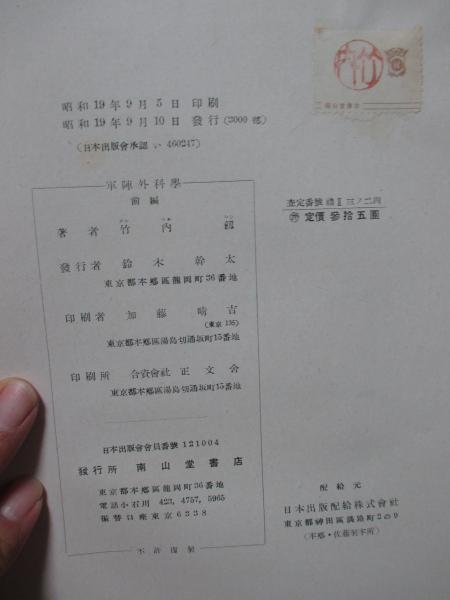 竹內
昭和19年9月5日 印刷
昭和19年9月10日 發行 (2000部)
(日本出版會承認 い 460247)
軍陣外科學
前編
著者 竹內 釼
發行者 鈴木幹太
東京都本鄕區龍岡町36番地
印刷者 加藤晴吉
(東京 135)
東京都本鄕區湯島切通坂町15番地
印刷所 合資會社 正文舍
東京都本鄕區湯島切通坂町15番地
日本出版會會員番號 121004
發行所 南山堂書店
東京都本鄕區龍岡町36番地
電話小石川 423, 4757, 5965
振替口座東京 6338
不許複製
定價 參拾五圓
配給元
日本出版配給株式會社
東京都神田區淡路町2の9
(本鄕・佐藤製本所)